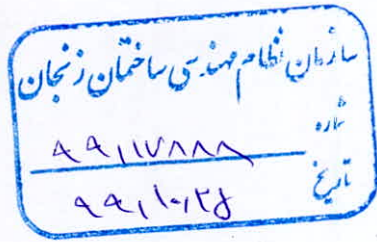 سازمان نظام مهندسی ساختمان زنجان
شماره ۹۹٫۱۷۸۸۸
تاریخ ۹۹٫۱۰٫۲۵